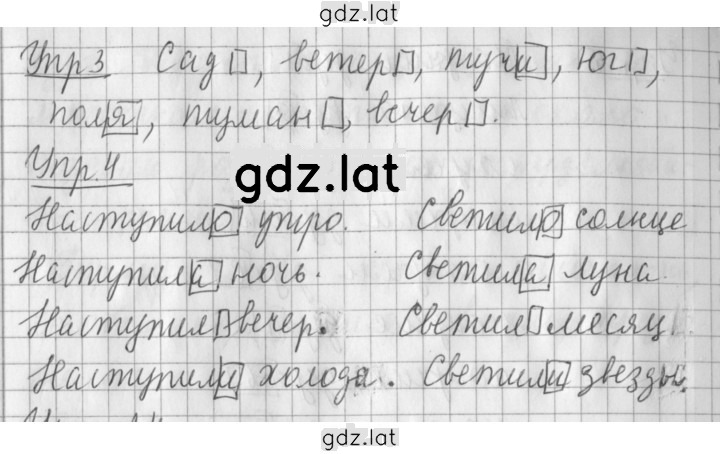 gdz.lat
Упр3 Сад, ветер, тучи, юг,
поля, туман, вечер.
Упр.4
gdz.lat
Наступило утро. Светило солнце
Наступила ночь. Светила луна.
Наступил вечер. Светил месяц.
Наступили холода. Светили звезды.
gdz.lat